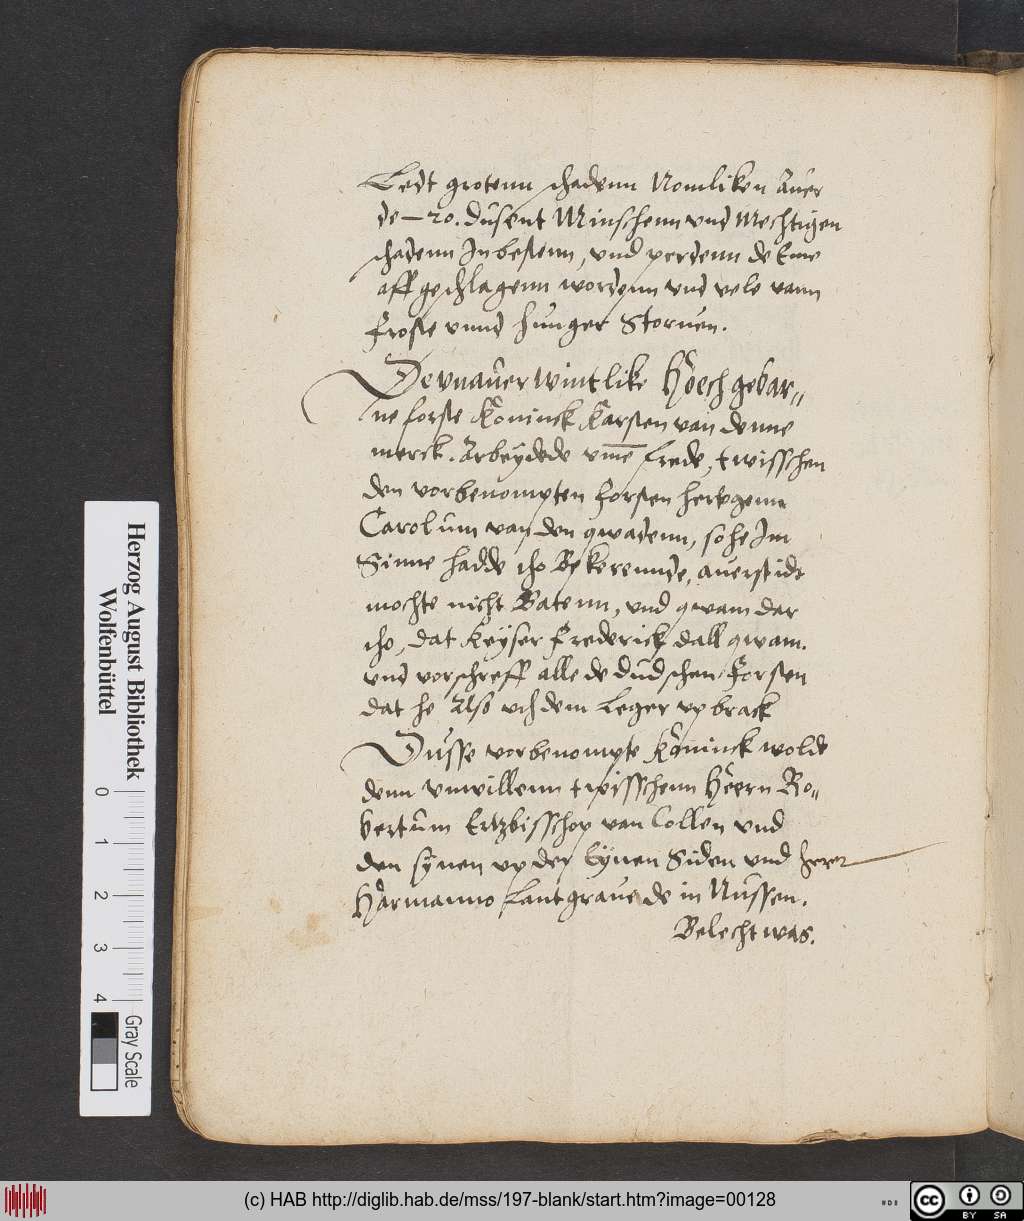 Ledt grotenn schadenn Nomliken auer
de – 20. dusent Minschenn vnd Mechtigen
schadenn In bestenn, vnd perdenn de Eme
aff geschlagenn wordenn vnd vele vann
froste vnnd hunger Storuen.
De vnauerwintlike Hoechgebar„
ne forste Koninck Karsten van denne
merck. Arbeydede vme frede, twisschen
den vorbenompten forsten hertgenn
Carolum van den qwadenn, so he Im
Sinne hadde tho Bekerennde, auerst idt
mochte nicht Batenn, vnd qwam dar
tho, dat Keyser Frederick dall qwam.
vnd vorschreff alle de dudschen Forsten
dat he Also vth dem Leger vp brack
Dusse vorbenompte Koninck wolde
denn vnwillenn twisschenn Heern Ro„
bertum Ertzbisschop van Collen vnd
den synen vp der Eynen Siden vnd heren
Harmanno Lantgraue de in Nussen.
Belecht was.
Herzog August Bibliothek
Wolfenbüttel
0 1 2 3 4
Gray Scale
(c) HAB http://diglib.hab.de/mss/197-blank/start.htm?image=00128
cc BY SA